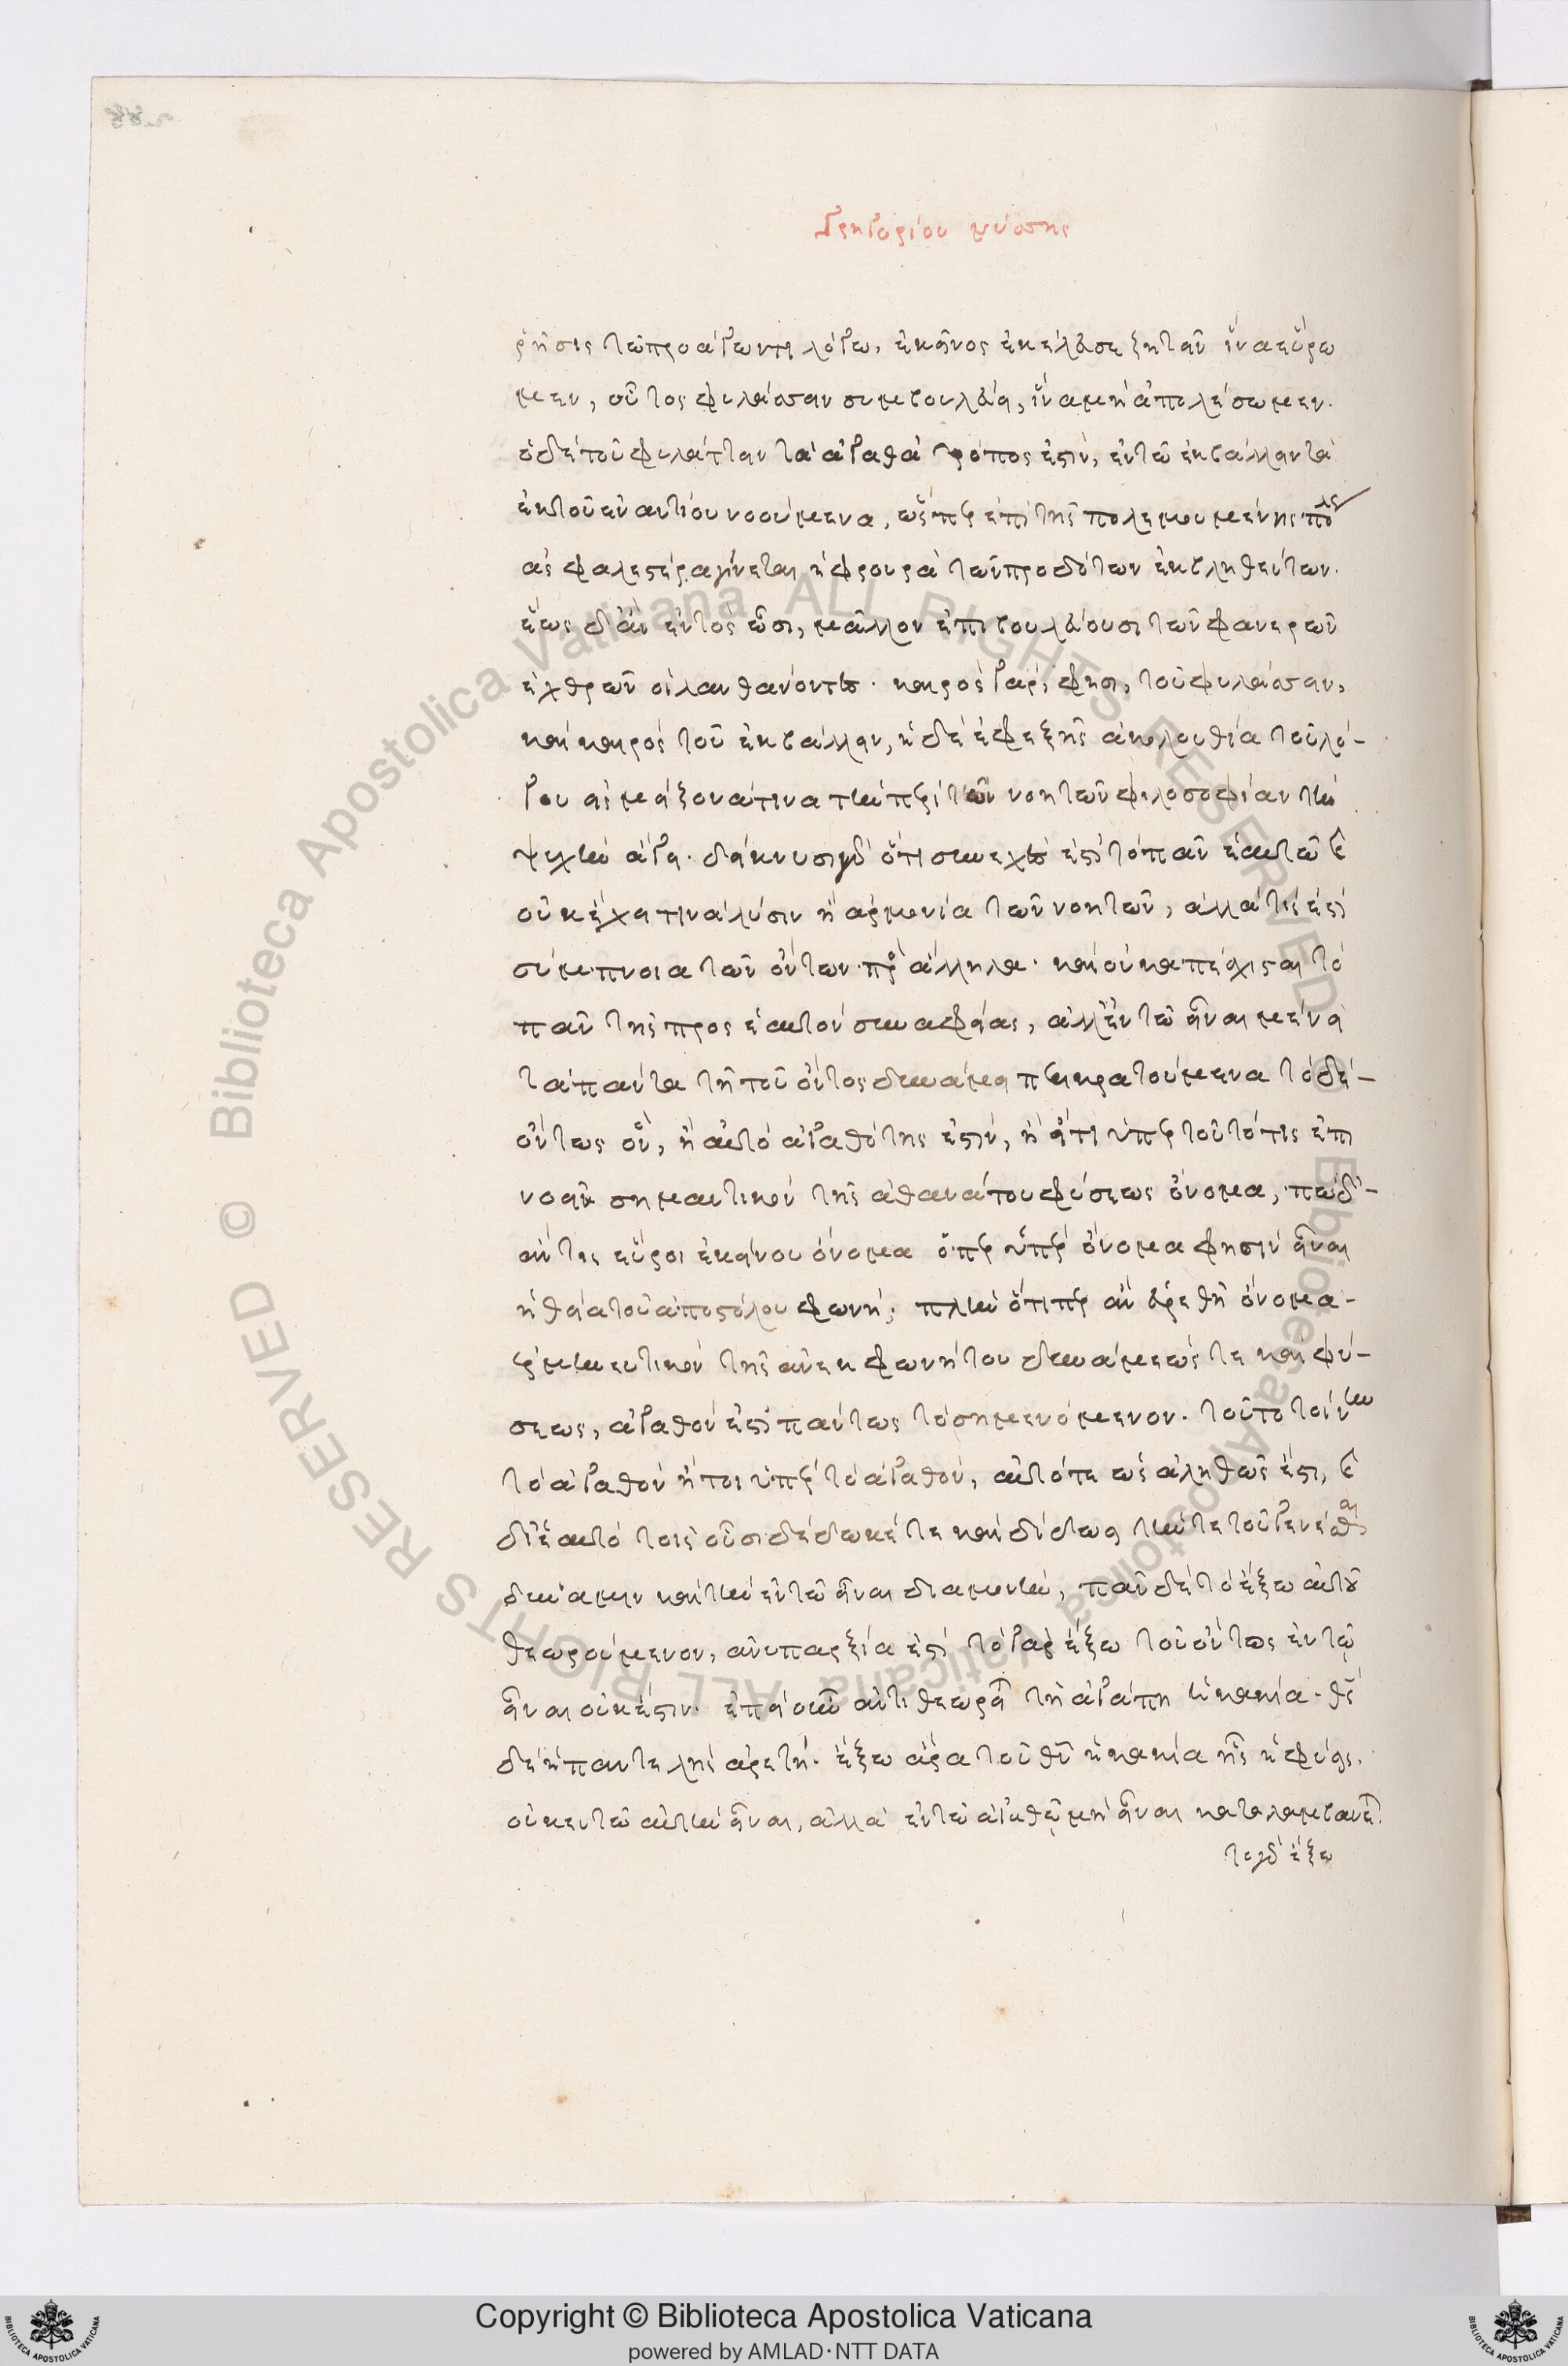 Γρηγορίου νύσσης
ρησις τῶ προάγοντι λόγω, ἐκεῖνος ἐκέλευσε ζητεῖν ἵνα εὕρω
μεν, οὗτος φυλάσσειν συμβουλεύει, ἵνα μὴ ἀπολέσωμεν.
ὁ δὲ τοῦ φυλάττειν τὰ ἀγαθὰ τρόπος ἐστὶν, ἐν τῶ ἐκβάλλειν τὰ
ἐκ τοῦ ἐναντίου νοούμενα, ὥσπερ ἐπὶ τῆς πολεμουμένης πόλεως
ἀσφαλεστέρα γίνεται ἡ φρουρὰ τῶν προδότων ἐκβληθέντων.
ἕως δ' ἂν ἐντὸς ὦσι, μᾶλλον ἐπιβουλεύουσι τῶν φανερῶν
ἐχθρῶν οἱ λανθάνοντες. καιρὸς γάρ, φησι, τοῦ φυλάσσειν,
καὶ καιρὸς τοῦ ἐκβάλλειν, ἡ δὲ ἐφεξῆς ἀκολουθία τοῦ λό-
γου εἰς μείζονά τινα τὴν περὶ τῶν νοητῶν φιλοσοφίαν τὴν
ψυχὴν ἄγει. δείκνυσι γὰρ ὅτι συνεχὲς ἐστὶ τὸ πᾶν ἑαυτῶ καὶ
οὐκ ἔχει τινὰ λύσιν ἡ ἁρμονία τῶν νοητῶν, ἀλλά τις ἐστὶ
σύμπνοια τῶν ὄντων πρὸς ἄλληλα. καὶ οὐκ ἀπέσχισται τὸ
πᾶν τῆς πρὸς ἑαυτὸν συναφείας, ἀλλ' ἐν τῶ εἶναι μένει
τὰ πάντα τῆ τοῦ ὄντος δυνάμει περικρατούμενα τὸ δὲ-
ὄντως ὂν, ἡ αὐτὸ ἀγαθότης ἐστὶν, ἢ εἴ τι ὑπὲρ τοῦτό τις ἐπι
νοεῖ σημαντικὸν τῆς ἀθανάτου φύσεως ὄνομα, πῶς δ'-
ἄν τις εὕροι ἐκείνου ὄνομα ὅπερ ὑπὲρ ὄνομα φησὶν εἶναι
ἡ θεία τοῦ ἀποστόλου φωνή; πλὴν ὅτιπερ ἂν εὑρεθῆ ὄνομα-
ἑρμηνευτικὸν τῆς ἀνεκφωνήτου δυνάμεώς τε καὶ φύ-
σεως, ἀγαθὸν ἐστὶ πάντως τὸ σημαινόμενον. τοῦτο τοίνυν
τὸ ἀγαθὸν ἤτοι ὑπὲρ τὸ ἀγαθὸν, αὐτό τε ὡς ἀληθῶς ἐστι, καὶ
δι' ἑαυτὸ τοῖς οὖσι δέδωκέ τε καὶ δίδωσι τήν τε τοῦ γενέσθαι
δύναμιν καὶ τὴν ἐν τῶ εἶναι διαμονὴν, πᾶν δὲ τὸ ἔξω αὐτοῦ
θεωρούμενον, ἀνυπαρξία ἐστὶ τὸ γὰρ ἔξω τοῦ ὄντος ἐν τῶ
εἶναι οὐκ ἔστιν. ἐπεὶ οὖν ἀντιθεωρεῖται τῆ ἀγάπη ἡ κακία. θεὸς
δὲ ἡ παντελὴς ἀρετή. ἔξω ἄρα τοῦ θεοῦ ἡ κακία ἧς ἡ φύσις.
οὐκ ἐν τῶ αὐτὴν εἶναι, ἀλλὰ ἐν τῶ ἀγαθῶ μὴ εἶναι καταλαμβάνεται.
τῶ γὰρ ἔξω
Copyright © Biblioteca Apostolica Vaticana
powered by AMLAD·NTT DATA